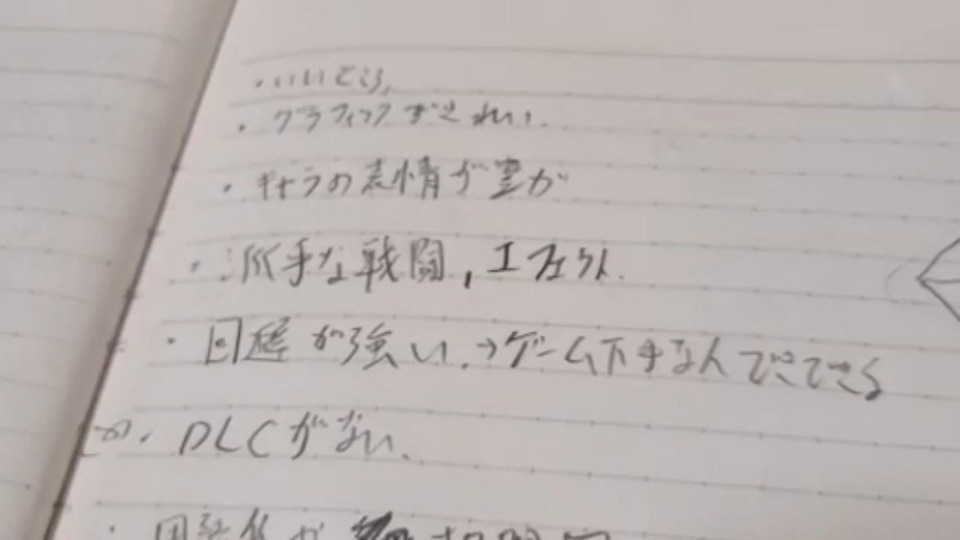 ・いいところ
・グラフィックがきれい
・キャラの表情が豊か
・派手な戦闘,エフェクト.
・回避が強い.→ゲーム下手な人でもできる
・DLCがない.